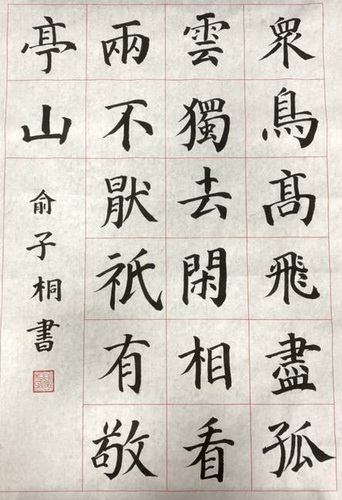 眾鳥髙飛盡孤
雲獨去閑相看
兩不厭祇有敬
亭山
俞子桐書